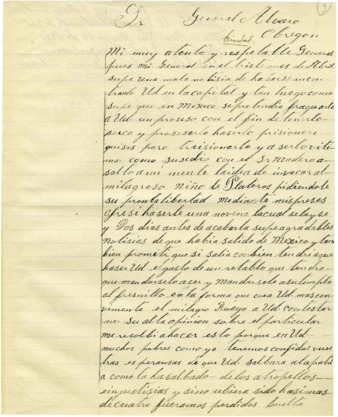 Sr General Alvaro
Ciudad Obregon
Mi muy atento y respetable General
pues mi General en el triste mes de Abril
supe una mala notisia de haberse
Ud en la capital y tan luego como
supe que en Mexico se pretendia fraguarle
a Ud un proseso con el fin de
y prosesarlo haserlo prisionero
quisos para traisionarlo y aserlo
como susedio con el Sr Madero a-
salto a mi mente la idea de invocar al
milagroso Niño de Plateros pidiendole
su pronta libertad mediante mis preses
ofresi haserle una novena la cual
y Dos dias antes de acabarla supe agradables
notisias de que habia salido de Mexico y tam
bien prometi que si salia con bien tendria que
haser Ud el gasto de un retablo que tendra
que mandarselo aser y mandarselo a su templo
al fresnillo en la forma que crea Ud mas con
viniente el milagro Ruego a Ud contestar
me su opinion sobre el particular
me resolbi a haser esto porque en Ud
muchos pobres como yo tenemos confiadas nues
tras esperansas de que Ud salbara a la patri
a como la ha salbado de los atropellos
injustisias y si no ubiera sido hasi mas
de cuatro fueramos perdidos buelto